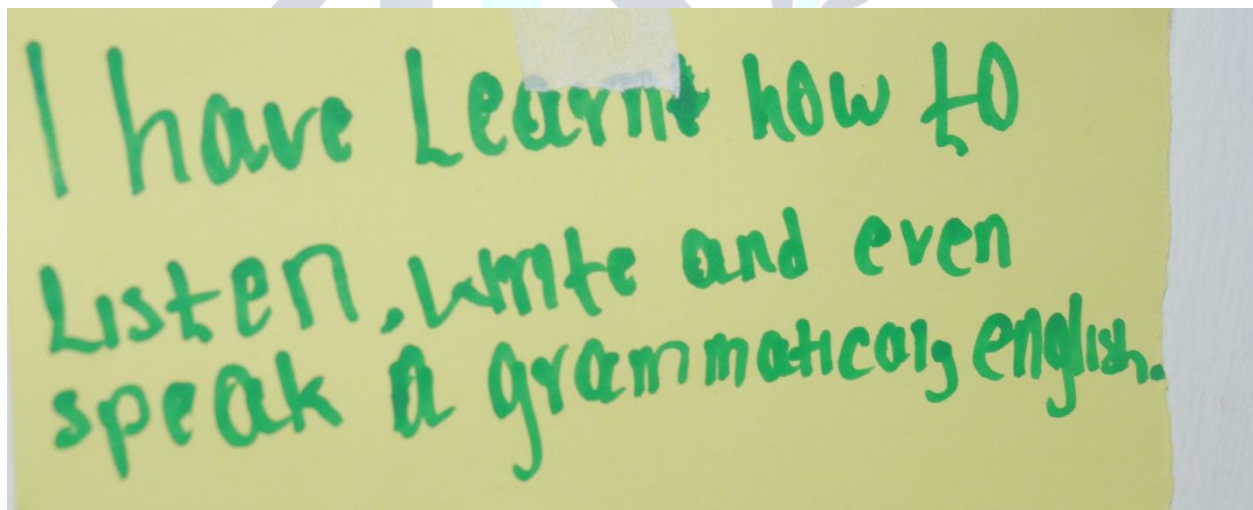 I have Learnt how to
Listen, write and even
speak a grammatical, english.